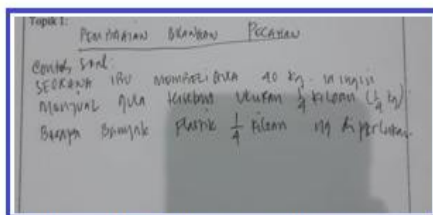 Topik 1:
PEMBAGIAN BILANGAN PECAHAN
Contoh Soal:
SEORANG IBU MEMBELI GULA 40 kg. ia ingin
menjual gula tersebut ukuran 1/4 kiloan (1/4 kg)
Berapa Banyak Plastik 1/4 kiloan yg diperlukan.